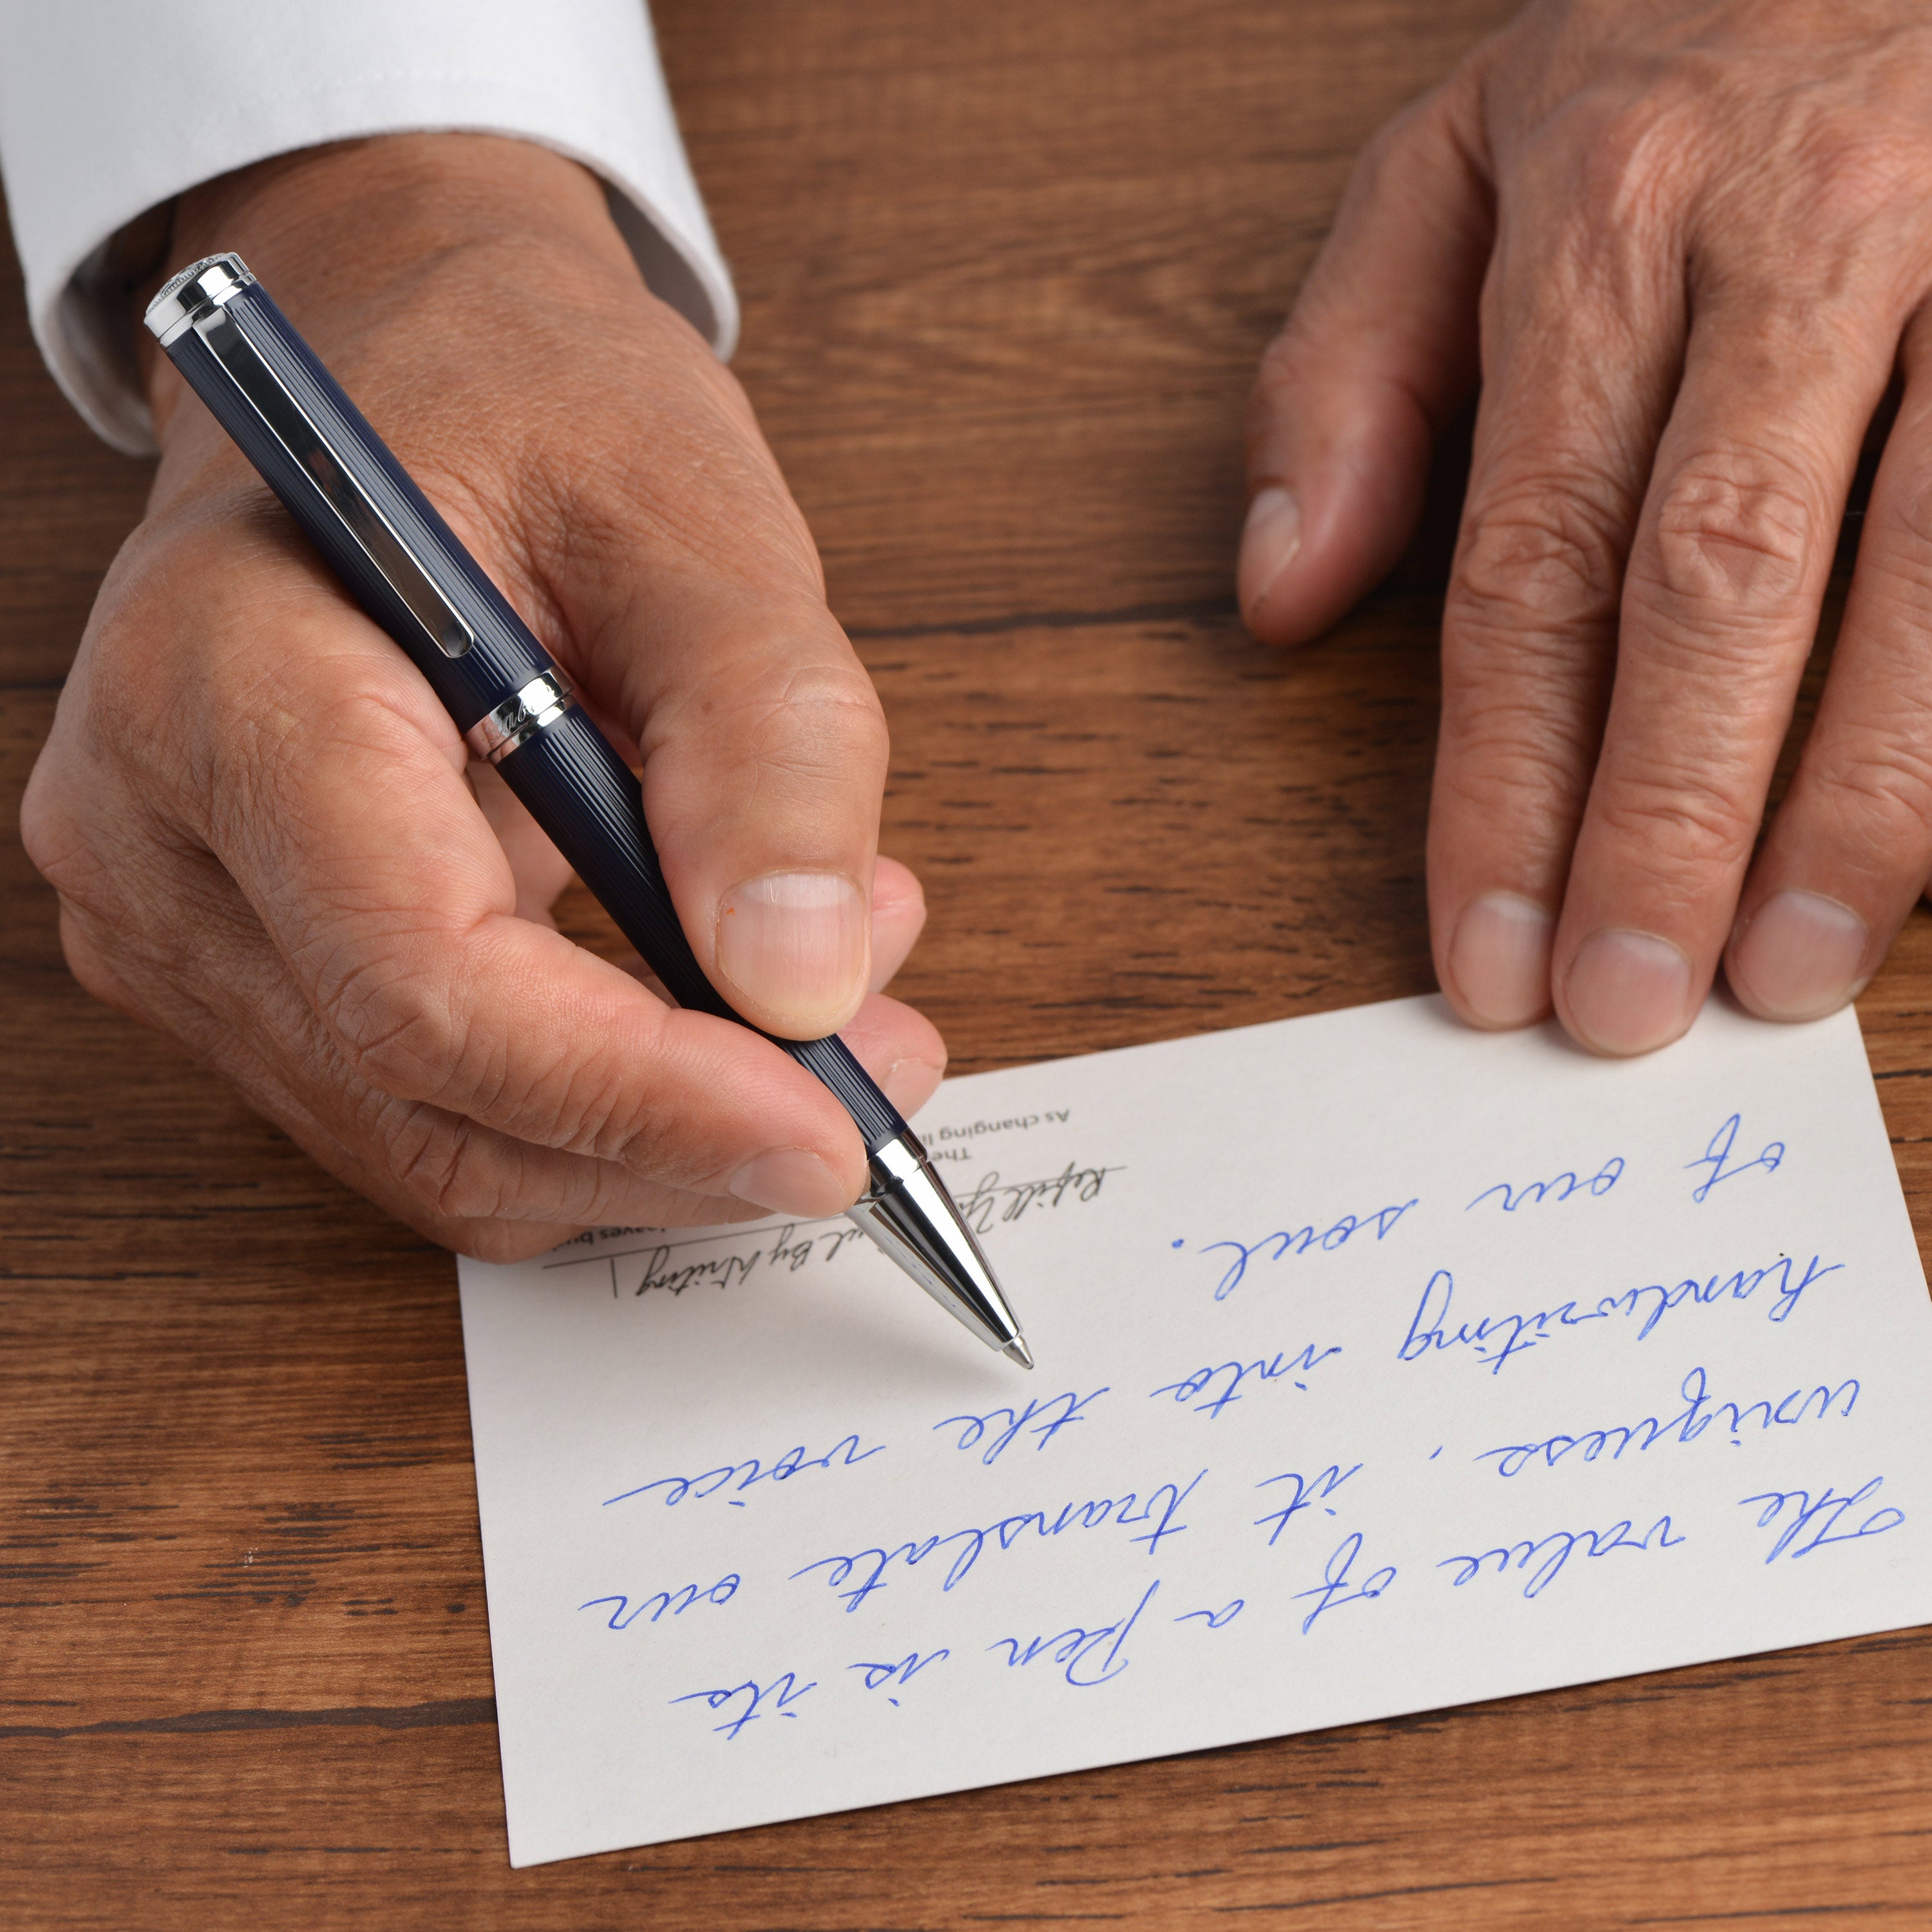 The value of a Pen is its
uniquess, it translate our
handwriting into the voice
of our soul.
Refill By Writing
The leaves
As changing